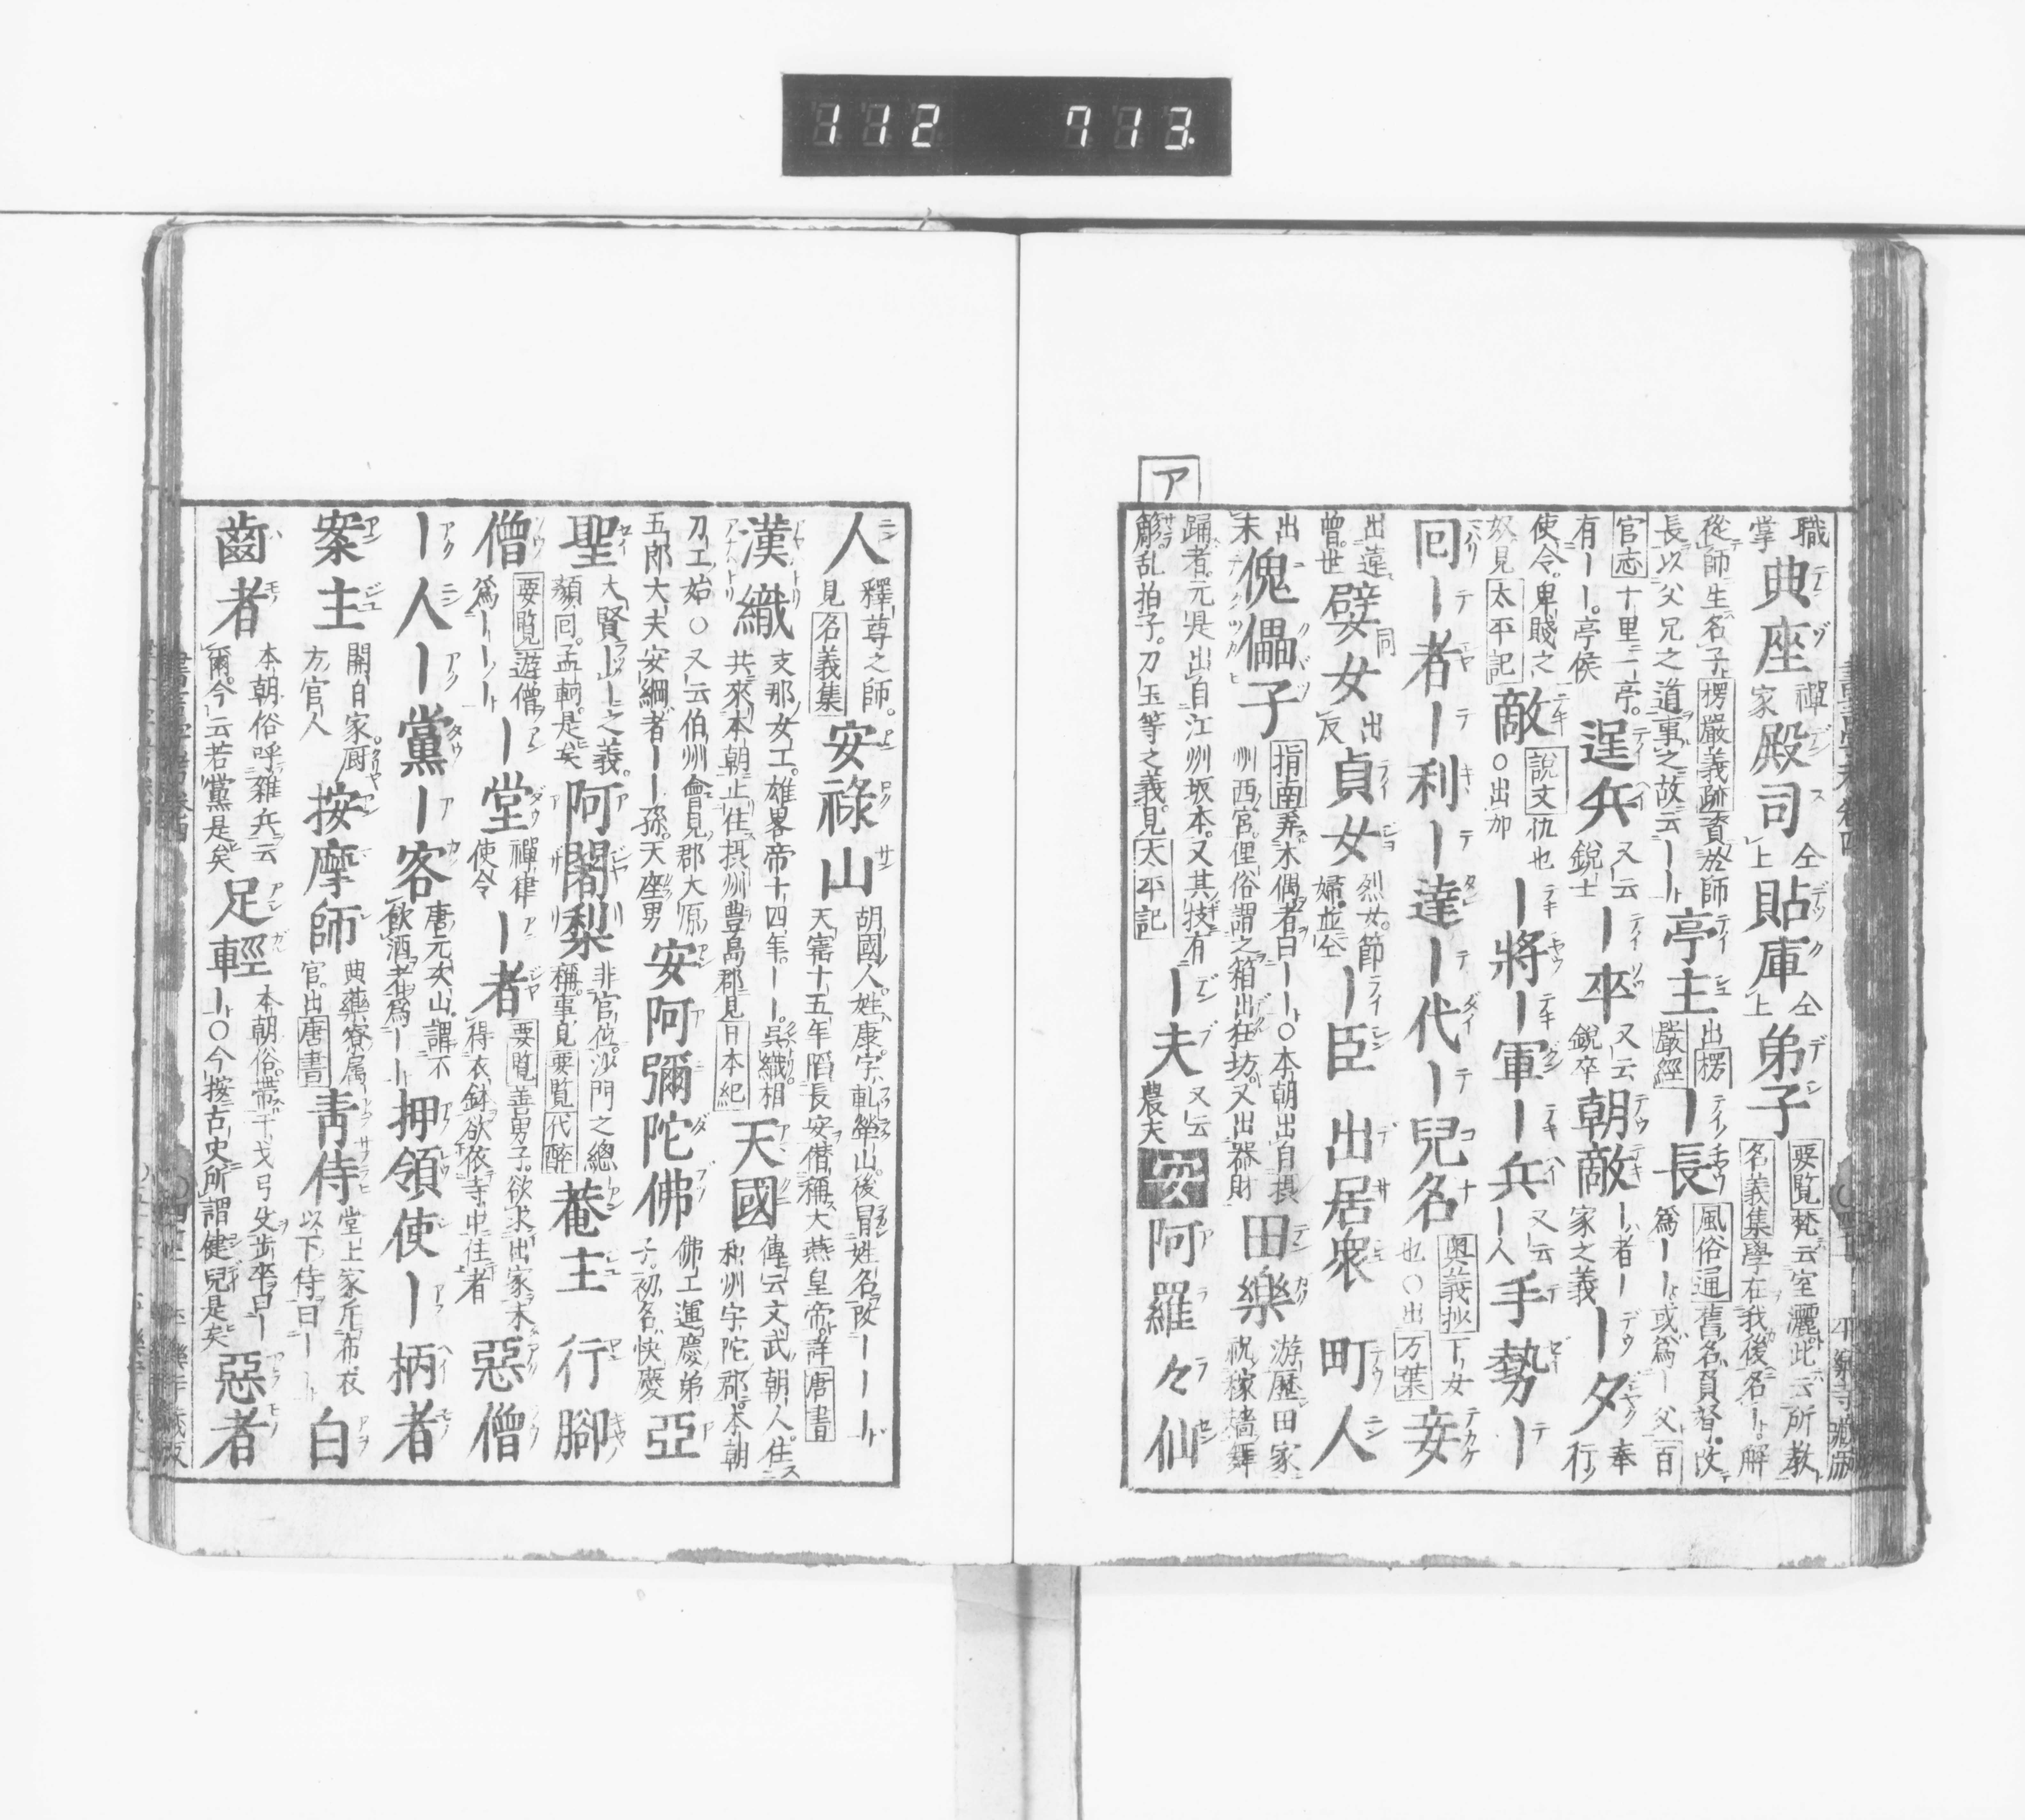 112 713
職掌 典座 禪家 殿司 仝上 貼庫 仝上 弟子 要覧梵云室灑此云所教
從師生名子楞嚴義跡資於師 名義集學在我後名ーー解
長以父兄之道事之故云ーー 亭主 出楞嚴經 ー長 風俗通舊名負督改爲ーー或爲ー父百
官志十里一亭有ーー亭侯 逞兵 又云鋭士 ー卒 又云鋭卒 朝敵 ー者ー家之義 ー夕 奉行
使令卑賤之奴見太平記 敵 説文仇也○出加 ー將ー軍ー兵 又云ー人 手勢ー
回ー者ー利ー達ー代ー兒名 奥義抄下女也○出万葉 妾
出遠曾世 嬖女 同 出反 貞女 烈女節婦並仝 ー臣 出居衆 町人
出末 傀儡子 指南弄木偶者曰ーー○本朝出自摂州西宮俚俗謂之箱出狂坊又出器財 田樂 游歴田家祝稼墻舞
踊者元是出自江州坂本又其技有觴乱拍子刀玉等之義見太平記 ー夫 又云農夫 安 阿羅々仙
ア
人 釋尊之師見名義集 安祿山 胡國人姓康字軋犖山後冒姓名改ーーー 天寳十五年陷長安僣稱大燕皇帝詳唐書
漢織 支那女工雄畧帝十四年ーー呉織相共來本朝止住摂州豊島郡見日本紀 天國 傳云文武朝人住和州宇陀郡本朝
刀工始○又云伯州會見郡大原五郎大夫安綱者ーー孫天座男 安阿彌陀佛 佛工運慶弟子初名快慶 亞
聖 大賢ーー之義顏回孟軻是矣 阿闍梨 非官位沙門之總稱事見要覧代醉 菴主 行腳
僧 要覧遊僧爲ーー ー堂 禪律使令 ー者 要覧善男子欲求出家未得衣鉢欲依寺中住者 惡僧
ー人ー黨ー客 唐元次山謂不飲酒者爲ーー 押領使ー柄者
案主 開自家厨方官人 按摩師 典藥寮属官出唐書 靑侍 堂上家斥布衣以下侍曰ー 白
齒者 本朝俗呼雜兵云爾今云若黨是矣 足輕 本朝俗帶干戈弓矢歩卒曰ーー○今按古史所謂健兒是矣 惡者